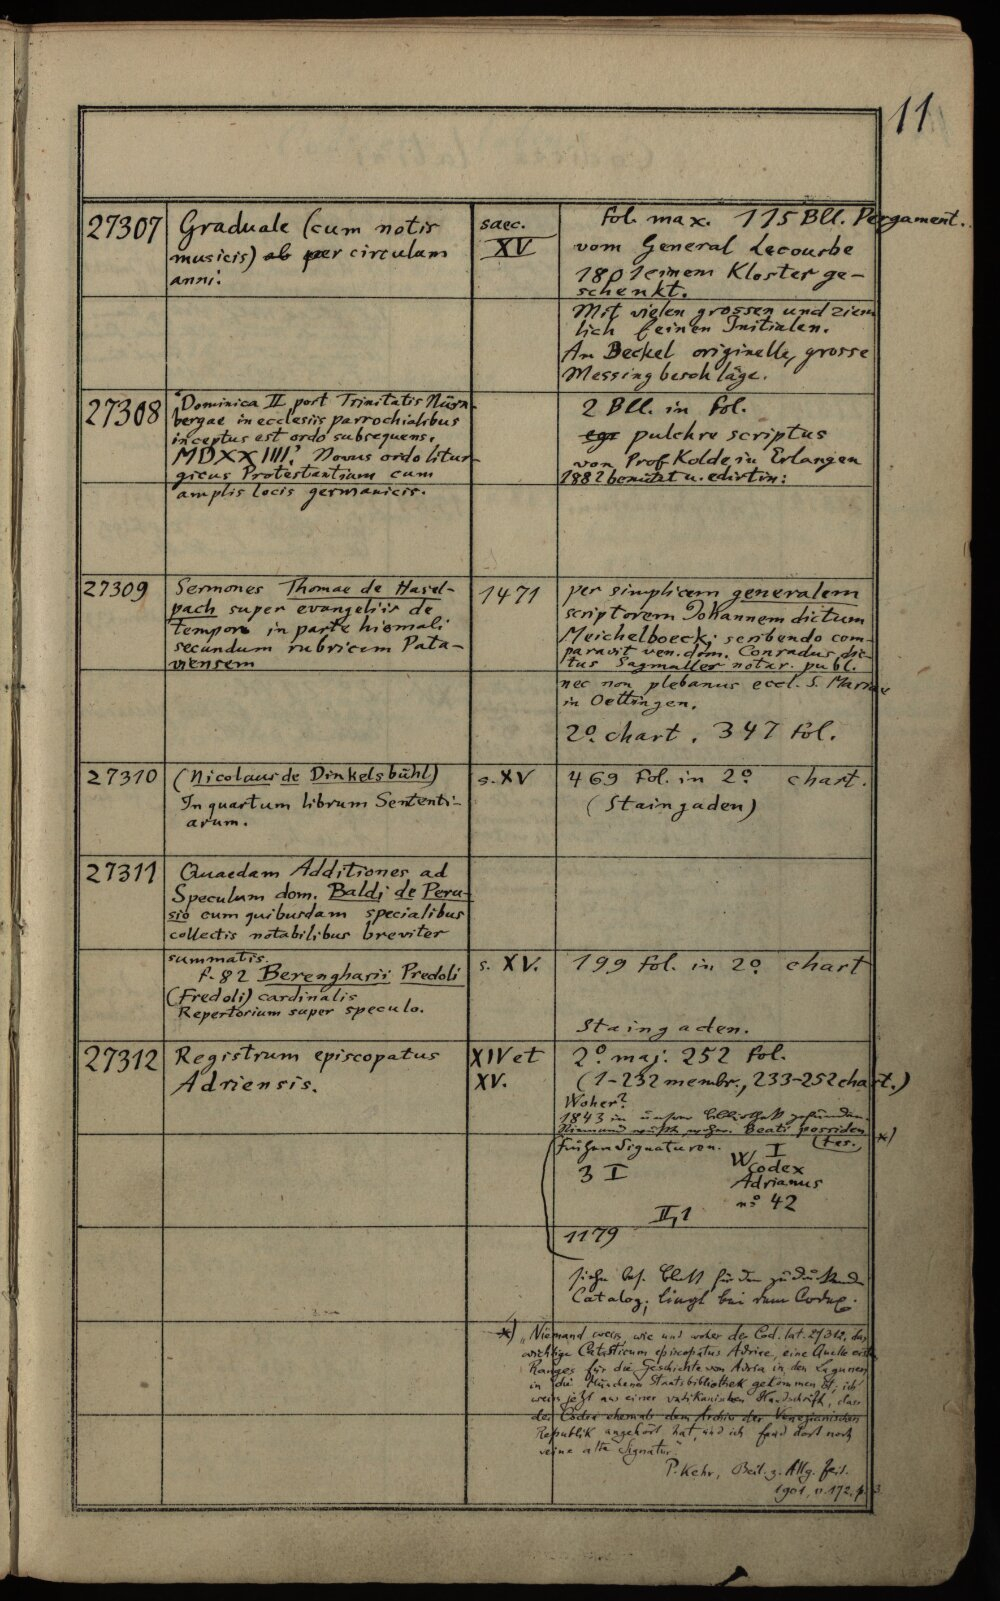 11
27307
Graduale (cum notis
musicis) ab per circulum
anni.
saec.
XV
fol. max. 115 Bll. Pergament.
vom General Lecourbe
1801 einem Kloster ge-
schenkt.
Mit vielen grossen und ziem
lich feinen Initialen.
Am Deckel originelle, grosse
Messingbeschläge.
27308
"Dominica II post Trinitatis Nürn-
bergae in ecclesiis parrochialibus
inceptus est ordo subsequens.
MDXXIIII." Novus ordo litur-
gicus Protestantium cum
amplis locis germanicis.
2 Bll. in fol.
pulchre scriptus
von Prof. Kolde in Erlangen
1882 benützt u.
27309
Sermones Thomae de Hasel-
pach super evangeliis de
tempore in parte hiemali
secundum rubricam Pata-
viensem
1471
per simplicem generalem
scriptorem Johannem dictum
Meichelboeck; scribendo com-
paravit ven. dom. Conradus dic-
tus Sagmaller notar. publ.
nec non plebanus eccl. S. Mariae
in Oettingen.
2º. chart. 347 fol.
27310
(Nicolaus de Dinkelsbühl)
In quartum librum Sententi-
arum.
s. XV
469 fol. in 2º. chart.
(Staingaden)
27311
Quaedam Additiones ad
Speculum dom. Baldi de Peru-
sio cum quibusdam specialibus
collectis notabilibus breviter
summatis.
f. 82 Berengharii Predoli
(Fredoli) cardinalis
Repertorium super speculo.
s. XV.
199 fol. in 2º. chart
Staingaden.
27312
Registrum episcopatus
Adriensis.
XIV et
XV.
2º. maj. 252 fol.
(1-232 membr., 233-252 chart.)
Woher?
1843 in unserer Bibliothek gefunden.
Niemand weiss woher. Beati possiden
tes. *)
Frühere Signaturen.
3 I
W I
Codex
Adrianus
nº. 42
II,1
1179
siehe bes. Blatt für den zu druckenden
Catalog; liegt bei dem Codex.
*) "Niemand weiss, wie und woher der Cod. lat. 27312, das
wichtige Catasticum episcopatus Adriae, eine Quelle ersten
Ranges für die Geschichte von Adria in den Lagunen
in die Münchener Staatsbibliothek gekommen ist; ich
weiss jetzt aus einer vatikanischen Handschrift, dass
der Codex ehemals dem Archiv der Venezianischen
Republik angehört hat, und ich fand dort noch
seine alte Signatur."
P. Kehr, Beil. z. Allg. Zeit.
1901, n. 172, p. 3.